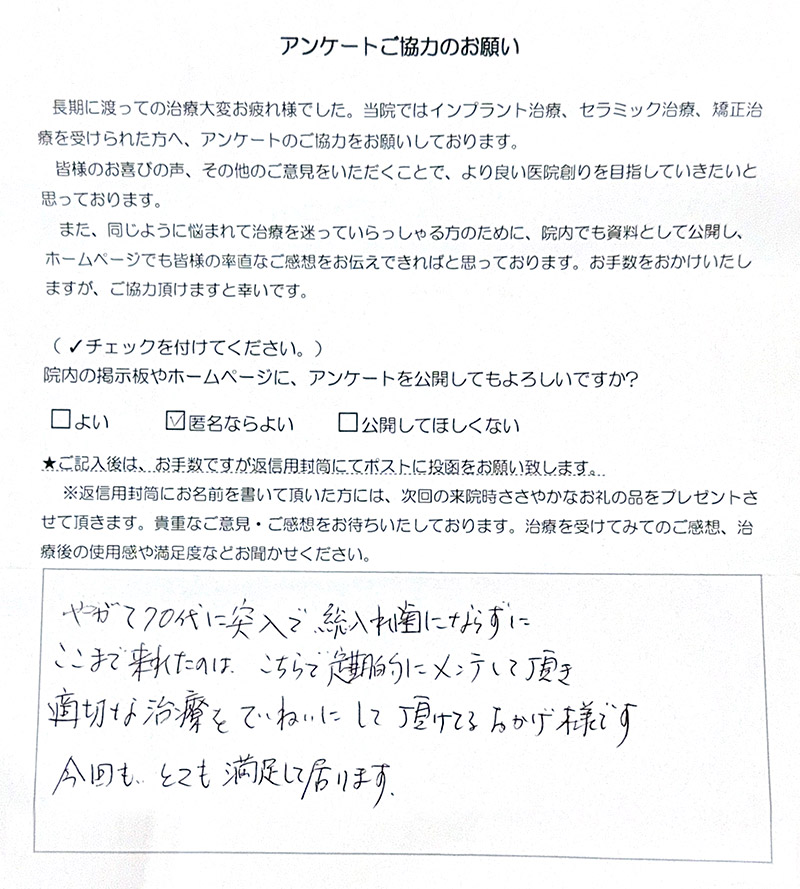 アンケートご協力のお願い
長期に渡っての治療大変お疲れ様でした。当院ではインプラント治療、セラミック治療、矯正治
療を受けられた方へ、アンケートのご協力をお願いしております。
皆様のお喜びの声、その他のご意見をいただくことで、より良い医院創りを目指していきたいと
思っております。
また、同じように悩まれて治療を迷っていらっしゃる方のために、院内でも資料として公開し、
ホームページでも皆様の率直なご感想をお伝えできればと思っております。お手数をおかけいたし
ますが、ご協力頂けますと幸いです。
(✓チェックを付けてください。)
院内の掲示板やホームページに、アンケートを公開してもよろしいですか?
□よい ☑匿名ならよい □公開してほしくない
★ご記入後は、お手数ですが返信用封筒にてポストに投函をお願い致します。
※返信用封筒にお名前を書いて頂いた方には、次回の来院時ささやかなお礼の品をプレゼントさ
せて頂きます。貴重なご意見・ご感想をお待ちいたしております。治療を受けてみてのご感想、治
療後の使用感や満足度などお聞かせください。
やがて70代に突入で総入れ歯にならずに
ここまで来れたのは、こちらで定期的にメンテして頂き
適切な治療をていねいにして頂けてるおかげ様です
今回も、とても満足して居ります。